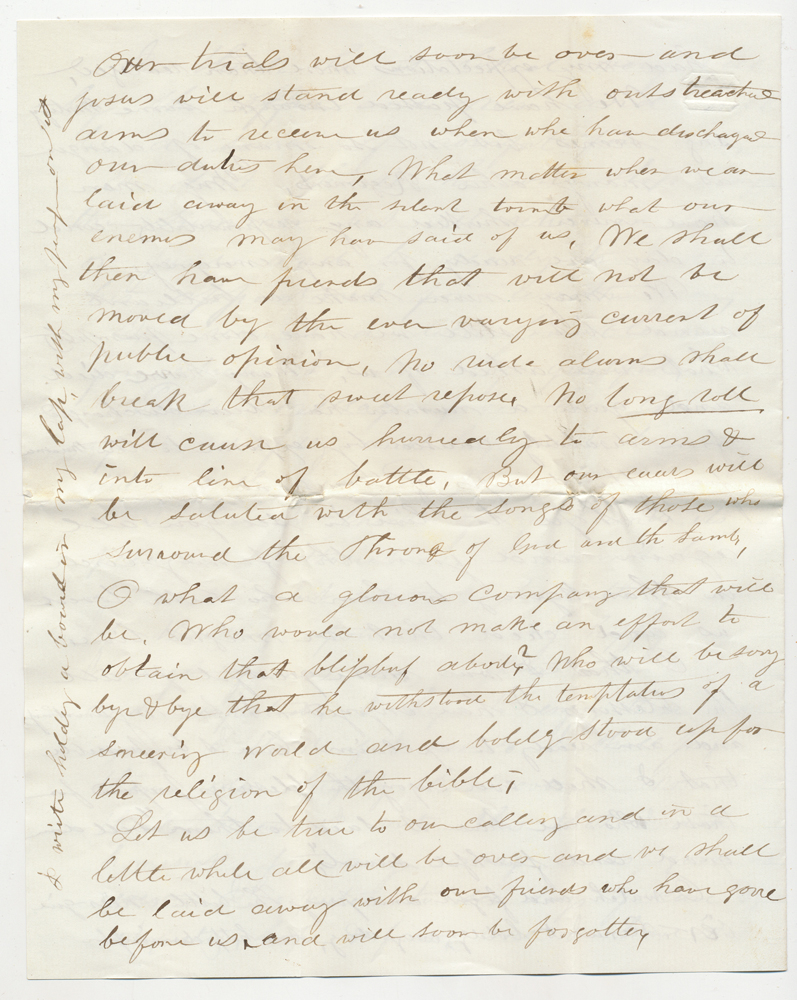 Our trials will soon be over and
jesus will stand ready with outstreached
arms to receive us when whe have dischaged
our duties here, What matter when we are
laid away in the silent tomb what our
enemies may have said of us, We shall
then have friends that will not be
moved by the ever varying current of
public opinion, No rude alarms shall
break that sweet repose. No long roll
will cause us hurriedly to arms &
into line of battle, But our ears will
be saluted with the songs of those who
surround the Throne of God and the Lamb,
O what a glorious company that will
be. Who would not make an effort to
obtain that blissful abode? Who will be sorry
bye & bye that he withstood the temptations of a
sneering world and boldly stood up for
the religion of the bible,
Let us be true to our calling and in a
little while all will be over and we shall
be laid away with our friends who have gone
before us and will soon be forgotten,
I write holding a board in my lap, with my on it